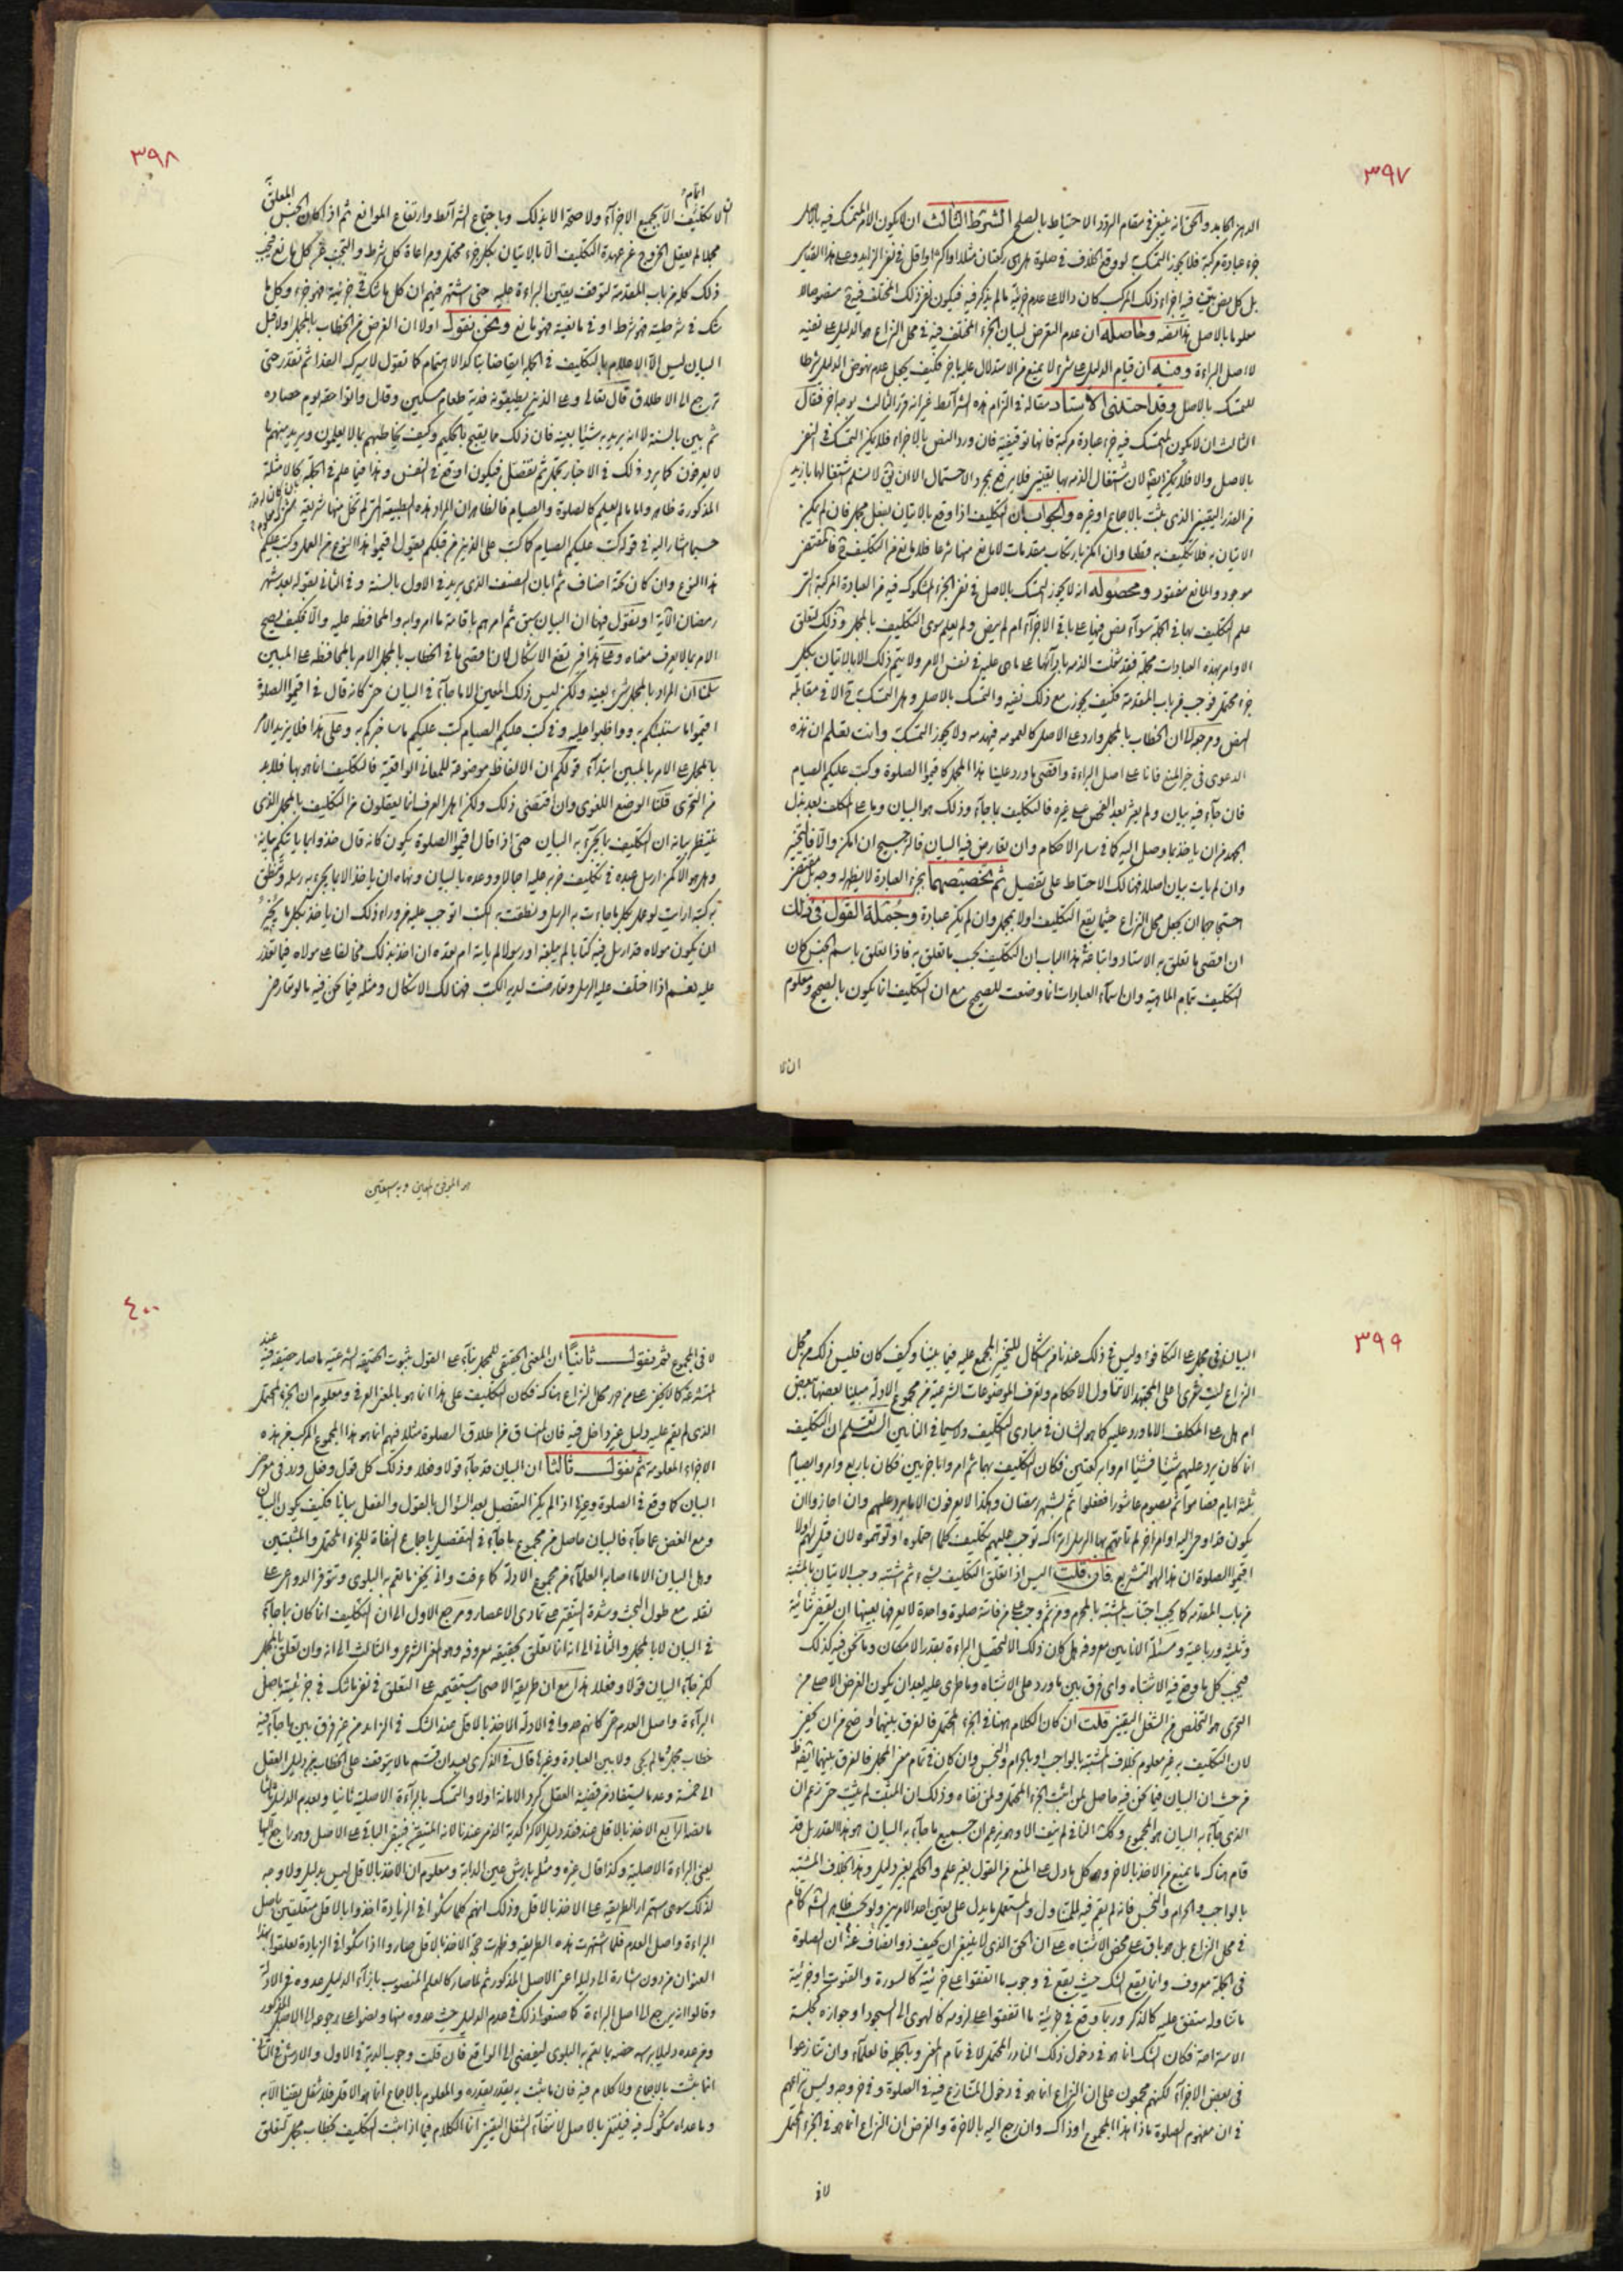 ٣٩٧
الشرط الثالث ان لا يكون الامر المتمسك فيه بالاصل
جزء عبادة مركبة فلا يجوز التمسك به لو وقع الخلاف في صلوة هل هي ركعتان مثلا او اكثر او اقل في نفي الزايد وعلى هذا القياس
بل كل نص بين فيه اجزاء ذلك المركب كان دالا على عدم جزئية ما لم يذكر فيه فيكون نفي ذلك المختلف فيه ح منصوصا لا
معلوما بالاصل وحاصله ان عدم التعرض لبيان الجزء المختلف فيه في محل النزاع هو الدليل على نفيه
لا اصل البراءة وفيه ان قيام الدليل على شيء لا يمنع من الاستدلال عليه باخر فكيف يجعل عدم نهوض الدليل شرطا
للتمسك بالاصل وقد احتذى الاستاد مقاله في التزام هذه الشرائط غير انه قرر الثالث بوجه اخر فقال
الثالث ان لا يكون المتمسك فيه جزء عبادة مركبة فانها توقيفية فان ورد النص بالاجزاء فلا يكن التمسك في النفي
بالاصل والا فلا يمكن ايضا لان اشتغال الذمة بها يقيني فلا يرتفع بمجرد الاحتمال الا ان يق لا نسلم اشتغالها بازيد
من القدر اليقيني الذي يثبت بالاجماع او غيره والجواب ان التكليف اذا وقع بالاتيان بفعل مجمل فان لم يمكن
الاتيان به فلا تكليف به قطعا وان امكن بارتكاب مقدمات لا مانع منها شرعا فلا مانع من التكليف ح فالمقتضي
موجود والمانع مفقود ومحصوله انه لا يجوز التمسك بالاصل في نفي الجزء المشكوك فيه من العبادة المركبة التي
علم التكليف بها في الجملة سواء نص فيها على باقي الاجزاء ام لم ينص ولم يعلم سوى التكليف بالمجمل وذلك لتعلق
الاوامر بهذه العبادات مجملة فقد شغلت الذمة بادائها على ما هي عليه في نفس الامر ولا يتم ذلك الا بالاتيان بكل
جزء محتمل فوجب من باب المقدمة فكيف يجوز مع ذلك نفيه والتمسك بالاصل وهل التمسك به ح الا في مقابلة
النص ومرجعه الى ان الخطاب بالمجمل وارد على الاصل كالعموم فيهدمه ولا يجوز التمسك به وانت تعلم ان هذه
الدعوى في حيز المنع فانا على اصل البراءة واقصى ما ورد علينا هذا المجمل كاقيموا الصلوة وكتب عليكم الصيام
فان جاء فيه بيان ولم يعثر بعد الفحص على غيره فالتكليف بما جاء وذلك هو البيان وما على المكلف بعد بذل
الجهد من ان ياخذ بما وصل اليه كما في ساير الاحكام وان تعارض فيه البيان فالترجيح ان امكن والا فالتخيير
وان لم يات بيان اصلا فهنالك الاحتياط على تفصيل ثم تخصيصهما بجزء العبادة لا يظهر له وجه بل مقتضى
احتجاجهما ان يجعل محل النزاع حيثما يقع التكليف اولا بمجمل وان لم يكن عبادة وجملة القول في ذلك
ان اقصى ما تعلق به الاستاد واتباعه في هذا الباب ان التكليف بحسب ما تعلق به فاذا تعلق باسم الجنس كان
التكليف بتمام الماهية وان اسماء العبادات انما وضعت للصحيح مع ان التكليف انما يكون بالصحيح ومعلوم
٣٩٨
لا تكليف الا بجميع الاجزاء ولا صحة الا بذلك وباجتماع الشرائط وارتفاع الموانع ثم اذا كان الجنس المعلق
مجملا لم يعقل الخروج عن عهدة التكليف الا بالاتيان بكل جزء محتمل ومراعاة كل شرط والتجنب عن كل مانع فيجب
ذلك كله من باب المقدمة لتوقف يقين البراءة عليه حتى اشتهر فيهم ان كل ما شك في جزئيته فهو جزء وكل ما
شك في شرطيته فهو شرط او في مانعيته فهو مانع ونحن نقول اولا ان الغرض من الخطاب بالمجمل اولا قبل
البيان ليس الا الاعلام بالتكليف في الجملة
ترجع الى الاطلاق قال تعالى وعلى الذين يطيقونه فدية طعام مسكين وقال واتوا حقه يوم حصاده
ثم بين بالسنة لا انه يريد به شيئا بعينه فان ذلك مما يقبح بالحكيم وكيف يخاطبهم بما لا يعلمون ويريد منهم ما
لا يعرفون كما يرد ذلك في الاخبار بمجمل ثم تفصل فيكون اوقع في النفس وهذا فيما علم في الجملة كالامثلة
المذكورة ظاهر واما ما لم يعلم كالصلوة والصيام فالظاهر ان المراد هذه الطبيعة التي لم تخل منها شريعة
حسبما اشار اليه في قوله كتب عليكم الصيام كما كتب على الذين من قبلكم فيقول اقيموا هذا النوع من العمل وكتب عليكم
هذا النوع وان كان تحته اصناف ثم ابان الصنف الذي يريد في الاول بالسنة وفي الثاني بقوله بعد شهر
رمضان الاية او نقول فيها ان البيان سبق ثم امرهم باقامة ما امروا به والمحافظة عليه والا فكيف يصح
الامر بما لا يعرف معناه وعلى هذا فيرتفع الاشكال لان اقصى ما في الخطاب بالمجمل الامر بالمحافظة على المبين
سلمنا ان المراد بالمجمل شيء بعينه ولكن ليس ذلك المعين الا ما جاء في البيان حتى كانه قال في اقيموا الصلوة
اقيموا ما سنبينكم به وواظبوا عليه وفي كتب عليكم الصيام كتب عليكم ما ساخبركم به وعلى هذا فلا يزيد الامر
بالمجمل على الامر بالمبين ابتداء قولكم ان الالفاظ موضوعة للمعاني الواقعية فالتكليف انما هو بها فلا بد
من التحري قلنا الوضع اللغوي وان اقتضى ذلك ولكن اهل العرف انما يعقلون من التكليف بالمجمل الذي
ينتظر بيانه ان التكليف بما يجيء به البيان حتى اذا قال اقيموا الصلوة يكون كانه قال خذوا بما ياتيكم بيانه
وهل هو الا كمن ارسل عبده في تكليف ضربه عليه اجمالا ووعده بالبيان ونهاه ان ياخذ الا بما يجيء به رسله وتنطق
به كتبه ارايت لو عمل بكل ما جاءت به الرسل ونطقت به الكتب اتوجب عليه من وراء ذلك ان ياخذ بكل ما يجوز
ان يكون مولاه قد ارسل فيه كتابا لم يبلغه او رسولا لم ياته ام تعده ان اخذ بذلك مخالفا على مولاه فيما تقدر
عليه نعم اذا اختلف عليه الرسل وتعارضت لديه الكتب فهنالك الاشكال ومثله فيما نحن فيه ما لو تعارض
٣٩٩
النزاع
ام هل على المكلف الا ما ورد عليه كما هو الشان في مبادي التكليف ولا سيما في النائين الست تعلم ان التكليف
انما كان يرد عليهم شيئا فشيئا امروا بركعتين فكان التكليف بهما ثم امروا باخريين فكان باربع وامروا بصيام
ثلثة ايام فصاموا ثم بصوم عاشورا ففعلوا ثم بشهر رمضان وهكذا لا يعرفون الا ما يرد عليهم وان اجازوا ان
يكون قد اوحي اليه اوامر اخر لم تاتهم بها الرسل اتراك توجب عليهم تكليف كلما احتملوه او توهموه لان قيل لهم اولا
اقيموا الصلوة ان هذا لهو التشريع فان قلت اليس اذا تعلق التكليف بشيء ثم اشتبه وجب الاتيان بالمشتبه
من باب المقدمة كما يجب اجتناب المشتبه بالمحرم ومن ثم وجب على من فاتته صلوة واحدة لا يعرفها بعينها ان يقضي ثنائية
وثلثية ورباعية ومسئلة الانائين معروفة هل كان ذلك الا لتحصيل البراءة بقدر الامكان وما نحن فيه كذلك
فيجب كل ما وقع فيه الاشتباه واي فرق بين ما ورد على الاشتباه وما طرى عليه بعد ان يكون الغرض الاصلي من
التحري هو التخلص من الشغل اليقيني قلت ان كان الكلام ههنا في الجزء المحتمل فالفرق بينهما اوضح من ان يخفى
لان التكليف به غير معلوم بخلاف المشتبه بالواجب او بالحرام والنجس وان كان في تمام معنى المجمل فالفرق بينهما ايضا
من حيث ان البيان فيما نحن فيه حاصل لمن اثبت الجزء المحتمل ولمن نفاه وذلك ان المثبت لم يثبت حتى زعم ان
الذي جاء به البيان هو المجموع وكك النافي لم ينف الا وهو يزعم ان جميع ما جاء به البيان هو هذا القدر بل قد
قام هناك ما يمنع من الاخذ بالاخر وهو كل ما دل على المنع من القول بغير علم والحكم بغير دليل وهذا بخلاف المشتبه
بالواجب والحرام والنجس فانه لم يقم فيه للمتناول والمستعمل ما يدل على تعيين احد الامرين
في محل النزاع بل هو باق على محض الاشتباه على ان الحق الذي لا ينبغي ان يحيف ذو انصاف عنه ان الصلوة
في الجملة معروف وانما يقع الشك حيث يقع في وجوب ما اتفقوا على جزئيته كالسورة والقنوت او جزئية
ما تناوله متفق عليه كالذكر وربما وقع في جزئية ما اتفقوا على لزومه كالهوى الى السجود او جوازه كجلسة
الاستراحة فكان الشك انما هو في دخول ذلك النادر المحتمل لا في تمام المعنى وبالجملة فالعلماء وان تنازعوا
في بعض الاجزاء لكنهم مجمعون على ان النزاع انما هو في دخول المتنازع فيه في الصلوة وفي خروجه وليس نزاعهم
في ان مفهوم الصلوة ماذا هذا المجموع او ذاك وان رجع اليه بالاخرة والغرض ان النزاع انما هو في الجزء المحتمل
لا في
هو الموفق المعين وبه نستعين
٤٠٠
لا في المجموع ثم نقول ثانيا ان المعنى الحقيقي للمجمل بناء على القول بثبوت الحقيقة الشرعية ما صار حقيقة فيه عند
المتشرعة كما لا يخفى على من حرر محل النزاع هناك فكان التكليف على هذا انما هو بالمعنى العرفي ومعلوم ان الجزء المحتمل
الذي لم يقم عليه دليل غير داخل فيه فان المنساق من اطلاق الصلوة مثلا فيهم انما هو هذا المجموع المركب من هذه
الاجزاء المعلومة ثم نقول ثالثا ان البيان قد جاء قولا وفعلا وذلك كل قول وفعل ورد في معرض
البيان كما وقع في الصلوة وغيرها اذا لم يكن التفصيل بعد السؤال بالقول والفعل بيانا فكيف يكون البيان
ومع الغض عما جاء فالبيان حاصل من مجموع ما جاء في التفصيل باجماع النفاة للجزء المحتمل والمثبتين
وهل البيان الا ما اصابه العلماء من مجموع الادلة كما عرفت وانى يخفى ما تعم به البلوى وتتوفر الدواعي على
نقله مع طول البحث وشدة التنقير على تمادى الاعصار ومرجع الاول الى ان التكليف انما كان بما جاء
في البيان لا بالمجمل والثاني الى انه انما تعلق بحقيقة معروفة وهو المعنى الشرعي والثالث الى انه وان تعلق بالمجمل
لكن جاء البيان قولا وفعلا هذا مع ان طريقة الاصحاب مستقيمة على التعلق في نفي ما شك في جزئيته باصل
البراءة واصل العدم حتى كانهم عدوا في الادلة الاخذ بالاقل عند الشك في الزايد من غير فرق بين ما جاء فيه
خطاب مجمل وما لم يجئ ولا بين العبادة وغيرها قال في الذكرى بعد ان قسم ما لا يتوقف على الخطاب من دليل العقل
الى خمسة وعد ما يستفاد من قضية العقل كرد الامانة اولا والتمسك بالبراءة الاصلية ثانيا وبعدم الدليل ثالثا
ما لفظه الرابع الاخذ بالاقل عند فقد دليل الاكثر كدية الذمي عندنا لانه المتيقن فيبقى الباقي على الاصل وهو راجع اليها
يعني البراءة الاصلية وكذا قال غيره ومثله بارش عين الدابة ومعلوم ان الاخذ بالاقل ليس بدليل ولا وجه
لذلك سوى استمرار الطريقة على الاخذ بالاقل وذلك انهم كلما شكوا في الزيادة اخذوا بالاقل متعلقين باصل
البراءة واصل العدم فلما اشتهرت هذه الطريقة وظهرت حجية الاخذ بالاقل صاروا اذا شكوا في الزيادة تعلقوا بهذا
العنوان من دون اشارة الى دليله اعني الاصل المذكور ثم لما صار كالعلم المنصوب بازاء الدليل عدوه في الادلة
وقالوا انه يرجع الى اصل البراءة كما صنعوا ذلك في عدم الدليل حيث عدوه منها ونصوا على رجوعه الى الاصل المذكور
ومن عده دليلا براسه خصه بما تعم به البلوى ليفضي الى الواقع فان قلت وجوب الدية في الاول والارش في الثاني
انما يثبت بالاجماع ولا كلام فيه فان ما يثبت به يقدر بقدره والمعلوم بالاجماع انما هو الاقل فلا شغل يقينا الا به
وما عداه مشكوك فيه فينتفي بالاصل لانتفاء الشغل اليقيني انما الكلام فيما اذا ثبت التكليف بخطاب مجمل لتعلق